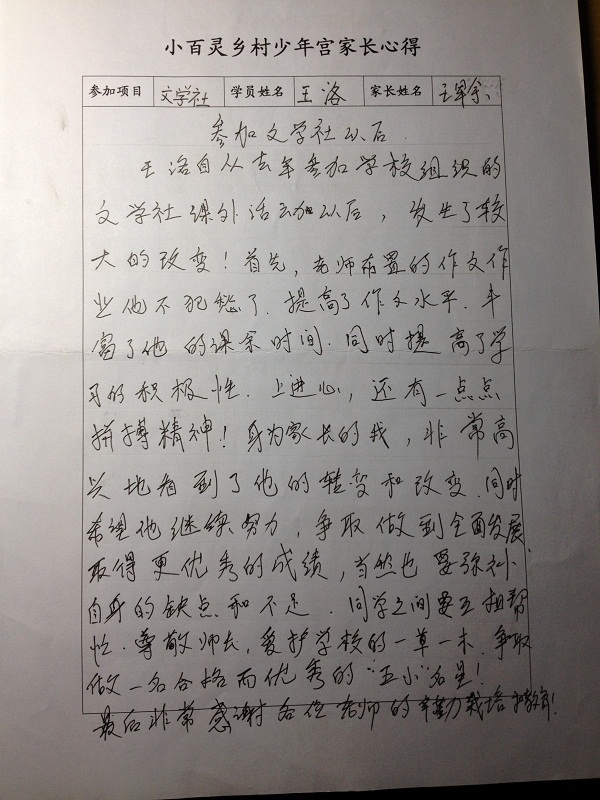 小百灵乡村少年宫家长心得
参加项目 文学社 学员姓名 王洛 家长姓名 王
参加文学社以后
王洛自从去年参加学校组织的
文学社课外活动以后，发生了较
大的改变！首先，老师布置的作文作
业他不犯愁了．提高了作文水平．丰
富了他的课余时间．同时提高了学
习的积极性．上进心，还有一点点
拼搏精神！身为家长的我，非常高
兴地看到了他的转变和改变．同时
希望他继续努力，争取做到全面发展
取得更优秀的成绩，当然也要弥补
自身的缺点和不足．同学之间要互相帮
忙．尊敬师长，爱护学校的一草一木．争取
做一名合格而优秀的“五小”名星！
最后非常感谢各位老师的辛勤栽培和教育！